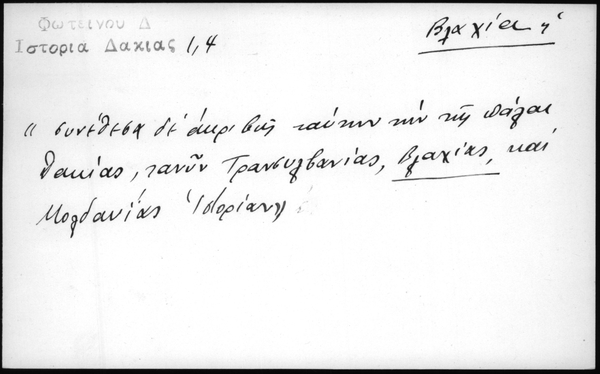 Φωτεινου Δ
Ιστορια Δακιας 1,4
Βλαχία ἡ
“ συνέθεσα δέ ἀκριβῶς ταύτην τήν τῆς πάλαι
Δακίας, τανῦν Τρανσυλβανίας, Βλαχίας, καί
Μολδαυίας Ἱστορίαν,,